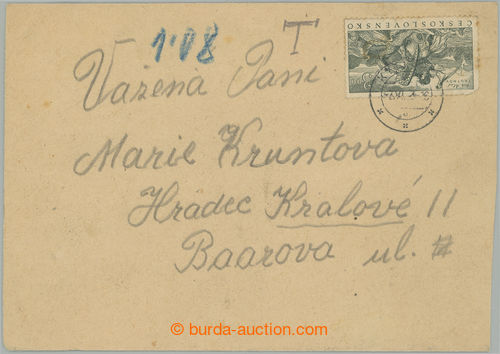 1.08
T
ČESKOSLOVENSKO
Vážena Pani
Marie Kruntova
Hradec Kralové II
Baarova ul. #
© burda-auction.com